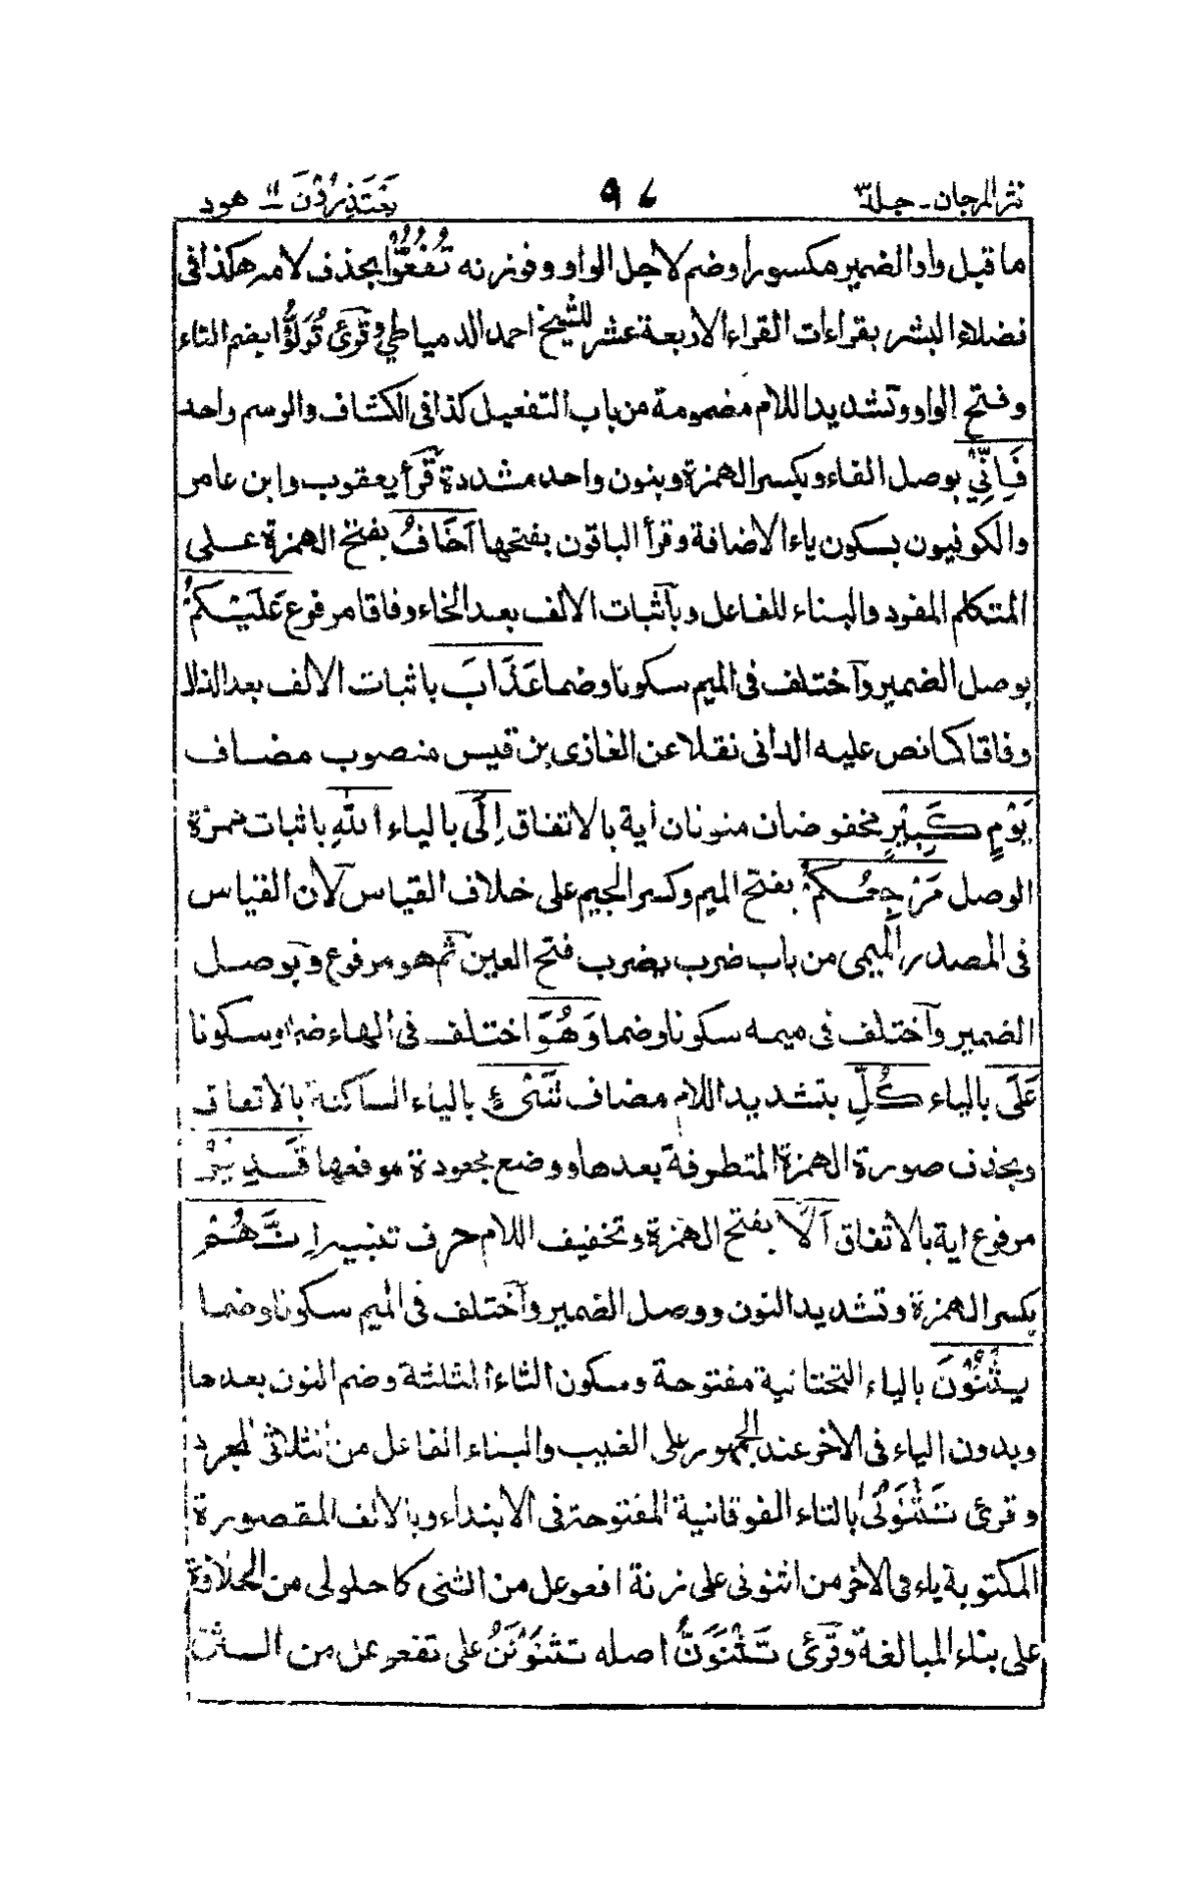 نثر المرجان - جلد۳ ۹۶ يَعْتَذِرُوْنَ ۱۱ - هود
ما قبل واو الضمير مكسورا وضم لاجل الواو ووزنه تُفُعُّوْا بحذف لامه هكذا فى
فضلاء البشر بقراءات القراء الاربعة عشر للشيخ احمد الدمياطي وقرئ تُوَلُّوْا بضم التاء
وفتح الواو وتشديد اللام مضمومة من باب التفعيل كذا فى الكشاف والرسم واحد
فَاِنِّيْ بوصل الفاء وبكسر الهمزة وبنون واحد مشددة قرأ يعقوب وابن عامر
والكوفيون بسكون ياء الاضافة وقرأ الباقون بفتحها اَخَافُ بفتح الهمزة على
المتكلم المفرد والبناء للفاعل وبآثبات الالف بعد الخاء وفاقا مرفوع عَلَيْكُمْ
بوصل الضمير وآختلف فى الميم سكونا وضما عَذَابَ باثبات الالف بعد الذال
وفاقا كما نص عليه الدانى نقلا عن الغازى بن قيس منصوب مضاف
يَوْمٍ كَبِيْرٍ مخفوضان منونان اية بالاتفاق اِلَى بالياء اللهِ باثبات همزة
الوصل مَرْجِعُكُمْ بفتح الميم وكسر الجيم على خلاف القياس لآن القياس
فى المصدر الميمى من باب ضرب يضرب فتح العين ثم هو مرفوع وبوصل
الضمير وآختلف فى ميمه سكونا وضما وَهُوَ اختلف فى الهاء ضما وسكونا
عَلَى بالياء كُلِّ بتشديد اللام مضاف شَىْءٍ بالياء الساكنة بالاتفاق
وبحذف صورة الهمزة المتطرفة بعدها ووضع مجعودة موقعها قَدِيْرٌ
مرفوع اية بالاتفاق اَلَآ بفتح الهمزة وتخفيف اللام حرف تنبيه اِنَّهُمْ
بكسر الهمزة وتشديد النون ووصل الضمير وآختلف فى الميم سكونا وضما
يَثْنُوْنَ بالياء التحتانية مفتوحة وسكون الثاء المثلثة وضم النون بعدها
وبدون الياء فى الاخر عند الجمهور على الغيب والبناء الفاعل من الثلاثى المجرد
وقرئ تَثْنَوْلَى بالتاء الفوقانية المفتوحة فى الابتداء وبالالف المقصورة
المكتوبة ياء فى الاخر من اثنونى على زنة افعوعل من الثنى كاحلولى من الحلاوة
على بناء المبالغة وقرئ تَثْنَوِنُّ اصله تَثْنَوْنِنُ على تفعوعل من الــثن